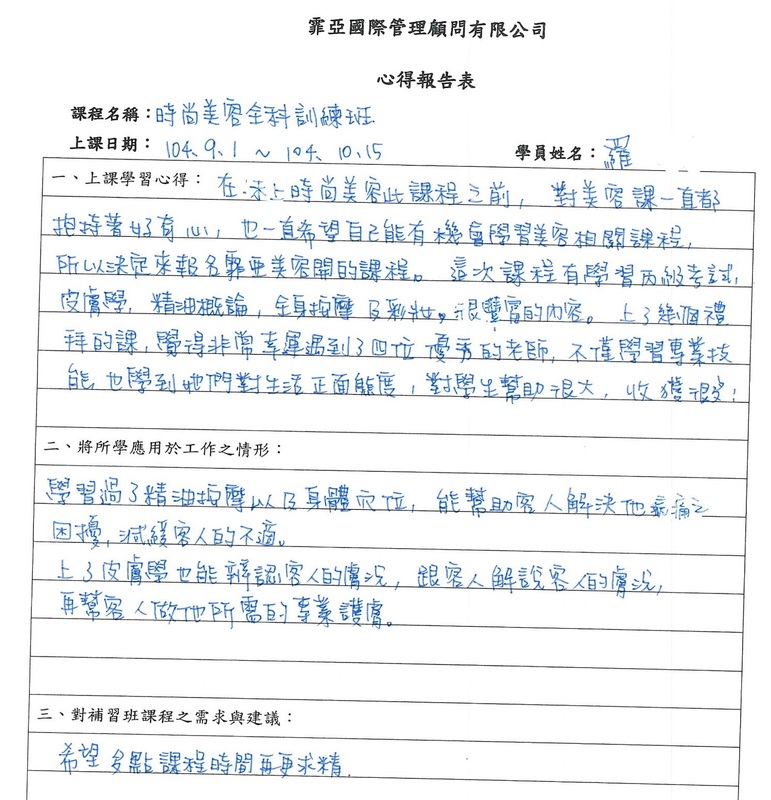 霏亞國際管理顧問有限公司
心得報告表
課程名稱：時尚美容全科訓練班
上課日期：104.9.1 ~ 104.10.15 學員姓名：羅
一、上課學習心得：在還未上時尚美容此課程之前，對美容課一直都
抱持著好奇心，也一直希望自己能有機會學習美容相關課程，
所以決定來報名霏亞美容開的課程。這次課程有學習丙級考試，
皮膚學，精油概論，全身按摩及彩妝。很豐富的內容。上了幾個禮
拜的課，覺得非常幸運遇到了四位優秀的老師，不僅學習專業技
能，也學到她們對生活正面態度，對學生幫助很大，收獲很多！
二、將所學應用於工作之情形：
學習過了精油按摩以及身體穴位，能幫助客人解決他病痛之
困擾，減緩客人的不適。
上了皮膚學也能辨認客人的膚況，跟客人解說客人的膚況，
再幫客人做他所需的專業護膚。
三、對補習班課程之需求與建議：
希望多點課程時間再更求精.